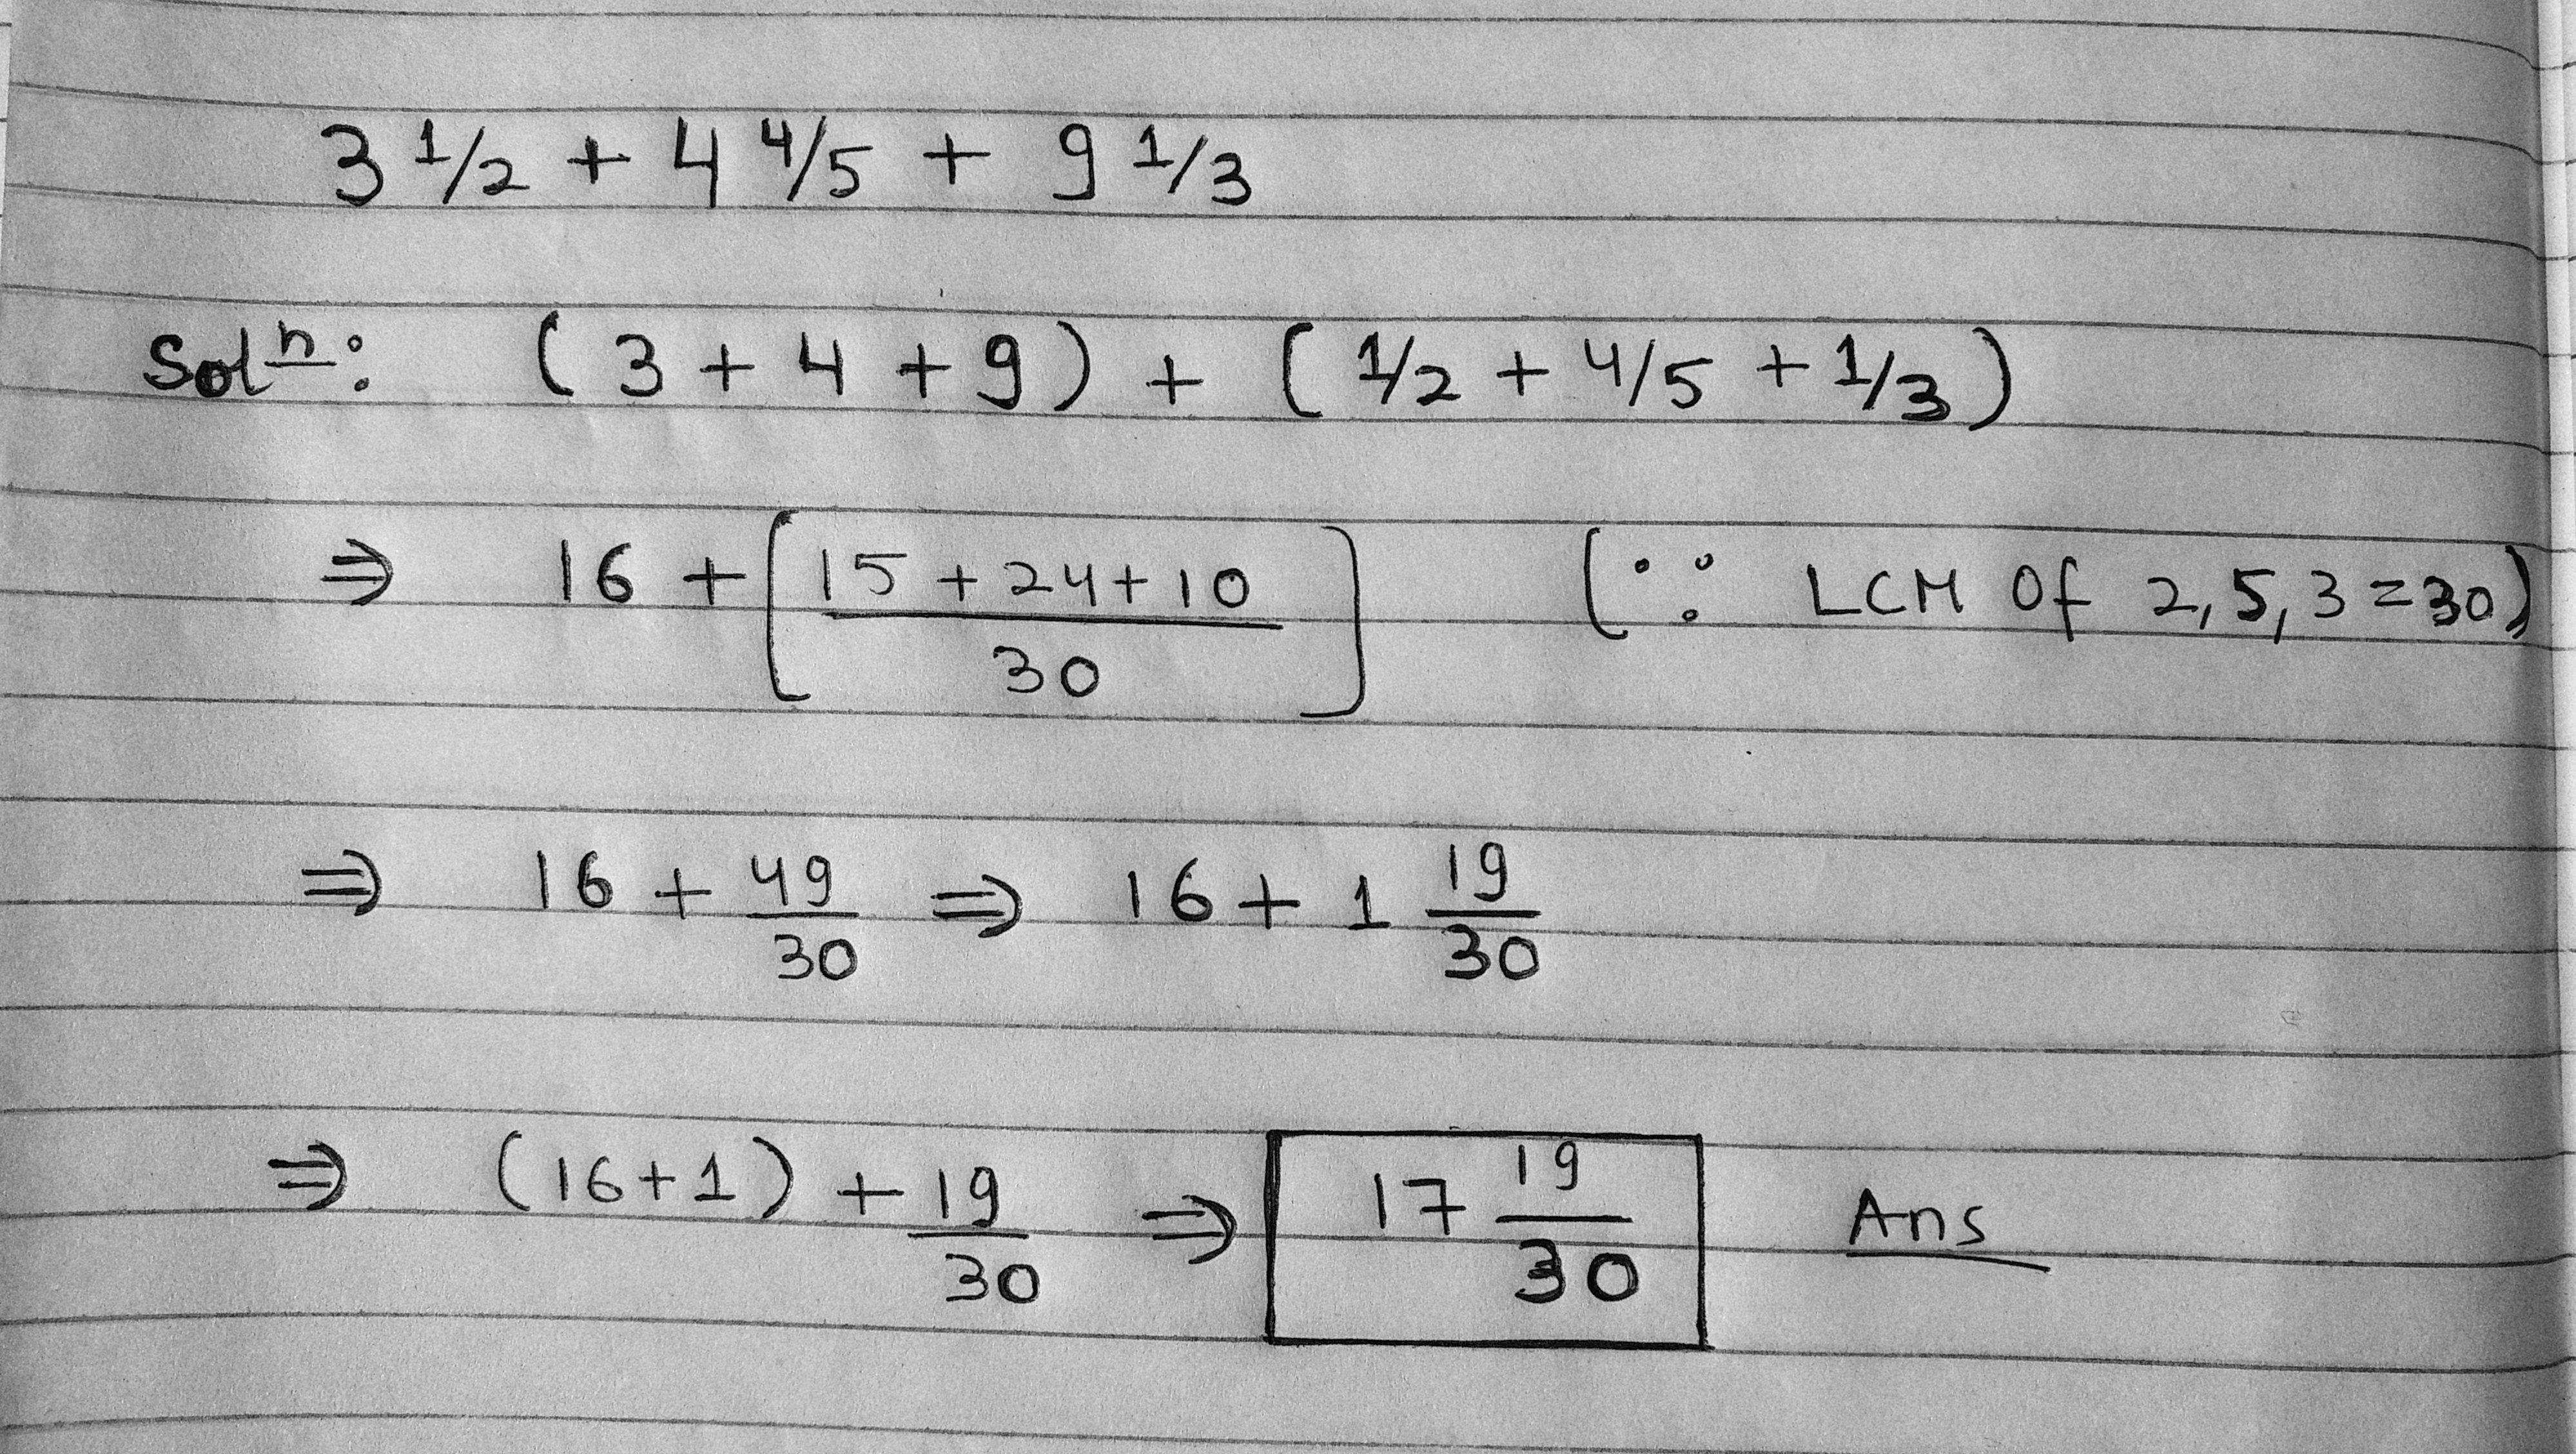 3 1/2 + 4 4/5 + 9 1/3
Solⁿ: (3 + 4 + 9) + (1/2 + 4/5 + 1/3)
⇒ 16 + [15 + 24 + 10 / 30] (∵ LCM Of 2, 5, 3 = 30)
⇒ 16 + 49/30 ⇒ 16 + 1 19/30
⇒ (16+1) + 19/30 ⇒ 17 19/30 Ans